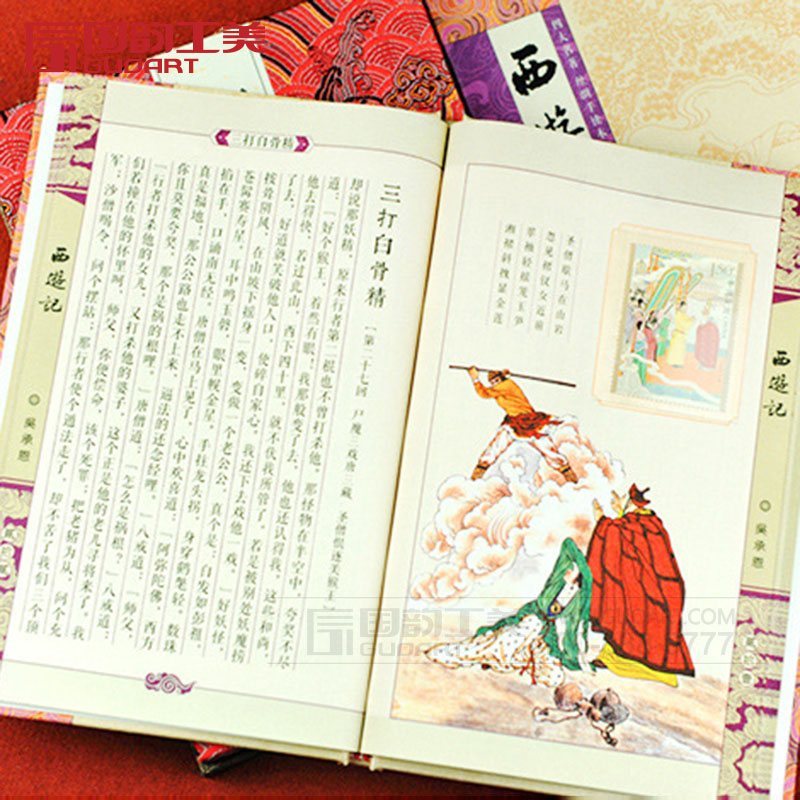 国韵工美
GUDART
西游
四大名著 丝绸手读本
三打白骨精
三打白骨精 【第二十七回 尸魔三戏唐三藏 圣僧恨逐美猴王】
却说那妖精，原来行者第二棍也不曾打杀他。那怪物在半空中，夸奖不尽
道：“好个猴王，着然有眼！我那般变了去，他也还认得我。这些和尚，
他去得快，若过此山，西下四十里，就不伏我所管了。若是被别处妖魔捞
了去，好道就笑破他人口，使碎自家心，我还下去戏他一戏。”好妖怪，
按耸阴风，在山坡下摇身一变，变做一个老公公，真个是：白发如彭祖，
苍髯赛寿星。耳中鸣玉磬，眼里幌金星。手拄龙头拐，身穿鹤氅轻。数珠
掐在手，口诵南无经。唐僧在马上见了，心中欢喜道：“阿弥陀佛！西方
真是福地！那公公路也走不上来，逼法的还念经哩。”八戒道：“师父，
你且莫要夸奖。那个是祸的根哩。”唐僧道：“怎么是祸根？”八戒道：
“行者打杀他的女儿，又打杀他的婆子，这个正是他的老儿寻将来了。我
们若撞在他的怀里呵，师父，你便偿命，该个死罪；把老猪为从，问个充
军；沙僧喝令，问个摆站；那行者使个遁法走了，却不苦了我们三个顶
西遊記 ◎ 吴承恩
圣僧歇马在山岩
忽见裙钗女近前
翠袖轻摇笼玉笋
湘裙斜拽显金莲
西遊記 ◎ 吴承恩
国韵工美
GUDART